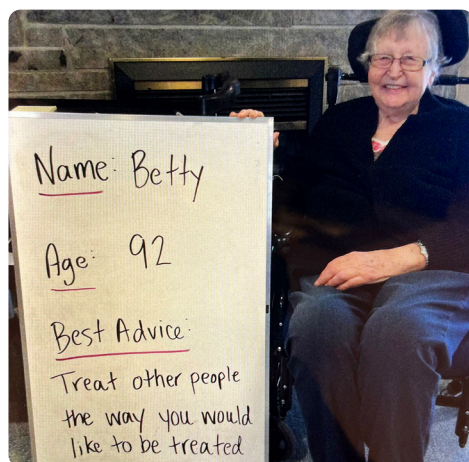 Name: Betty
Age: 92
Best Advice:
Treat other people
the way you would
like to be treated